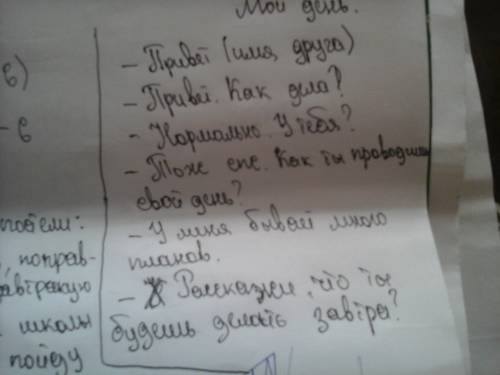 Мой день.
– Привет (имя друга)
– Привет. Как дела?
– Нормально. У тебя?
– Тоже спс. Как ты проводишь
свой день?
– У меня бывает много
планов.
– Расскажи, что ты
будешь делать завтра?
постели:
поправ-
школы
пойду